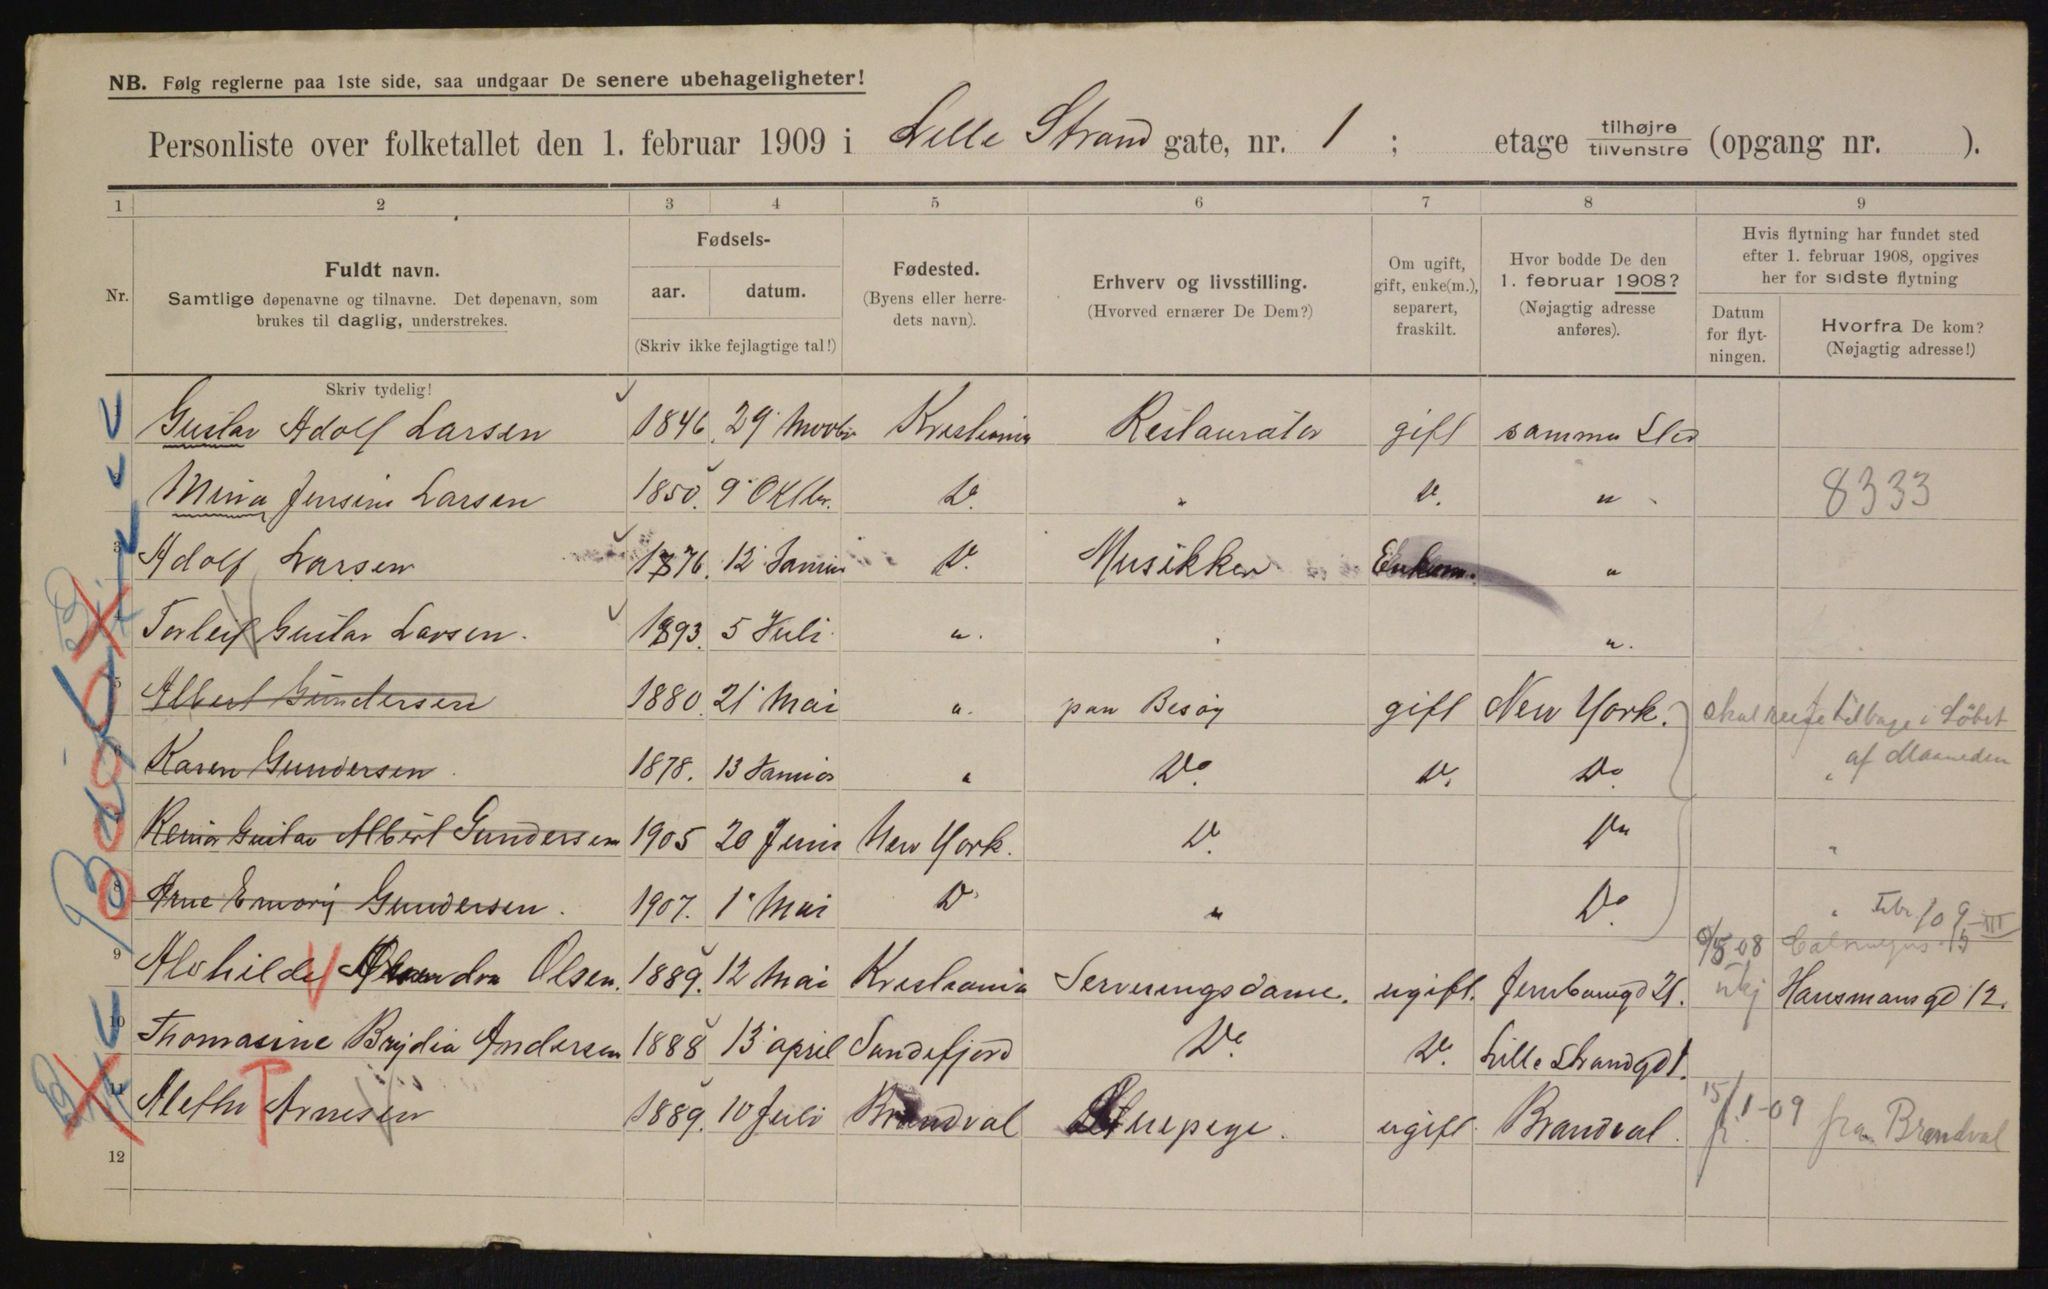 NB. Følg reglerne paa 1ste side, saa undgaar De senere ubehageligheter!
Personliste over folketallet den 1. februar 1909 i Lille Strand gate, nr. 1 ; etage tilhøjre tilvenstre (opgang nr. ).
1 2 3 4 5 6 7 8 9
Nr.
Fuldt navn.
Samtlige døpenavne og tilnavne. Det døpenavn, som
brukes til daglig, understrekes.
Skriv tydelig!
Fødsels-
aar. datum.
(Skriv ikke fejlagtige tal!)
Fødested.
(Byens eller herre-
dets navn).
Erhverv og livsstilling.
(Hvorved ernærer De Dem?)
Om ugift,
gift, enke(m.),
separert,
fraskilt.
Hvor bodde De den
1. februar 1908?
(Nøjagtig adresse
anføres).
Hvis flytning har fundet sted
efter 1. februar 1908, opgives
her for sidste flytning
Datum
for flyt-
ningen.
Hvorfra De kom?
(Nøjagtig adresse!)
Gustav Adolf Larsen 1846 29 Novbr Kristiania Restauratør gift samme Sted
Mina Jensine Larsen 1850. 9 Oktbr. Do. " Do. " 8333
3 Adolf Larsen 1876. 12 Januar Do. Musikker Enkem. "
Torleif Gustav Larsen. 1893. 5 Juli " "
5 Albert Gundersen 1880. 21 Mai " paa Besøg gift New York. skal reise tilbage i Løbet
6 Karen Gundersen 1878. 13 Januar " Do. Do. Do. " af Maaneden
Gustav Albert Gundersen 1905 20 Juni New York. Do. Do "
8 Arne Gundersen. 1907. 1 Mai Do " Do. "
9 Olsen. 1889. 12 Mai Kristiania Serveringsdame. ugift. Jernbanegd 21. Hausmansgd 12.
10 Thomasine Andersen 1888 13 april Sandefjord Do. Do. Lille Strandgd 1.
11 Alethe Arnesen 1889. 10 Juli Brandval ugift. Brandval. 15/1-09 fra Brandval
12